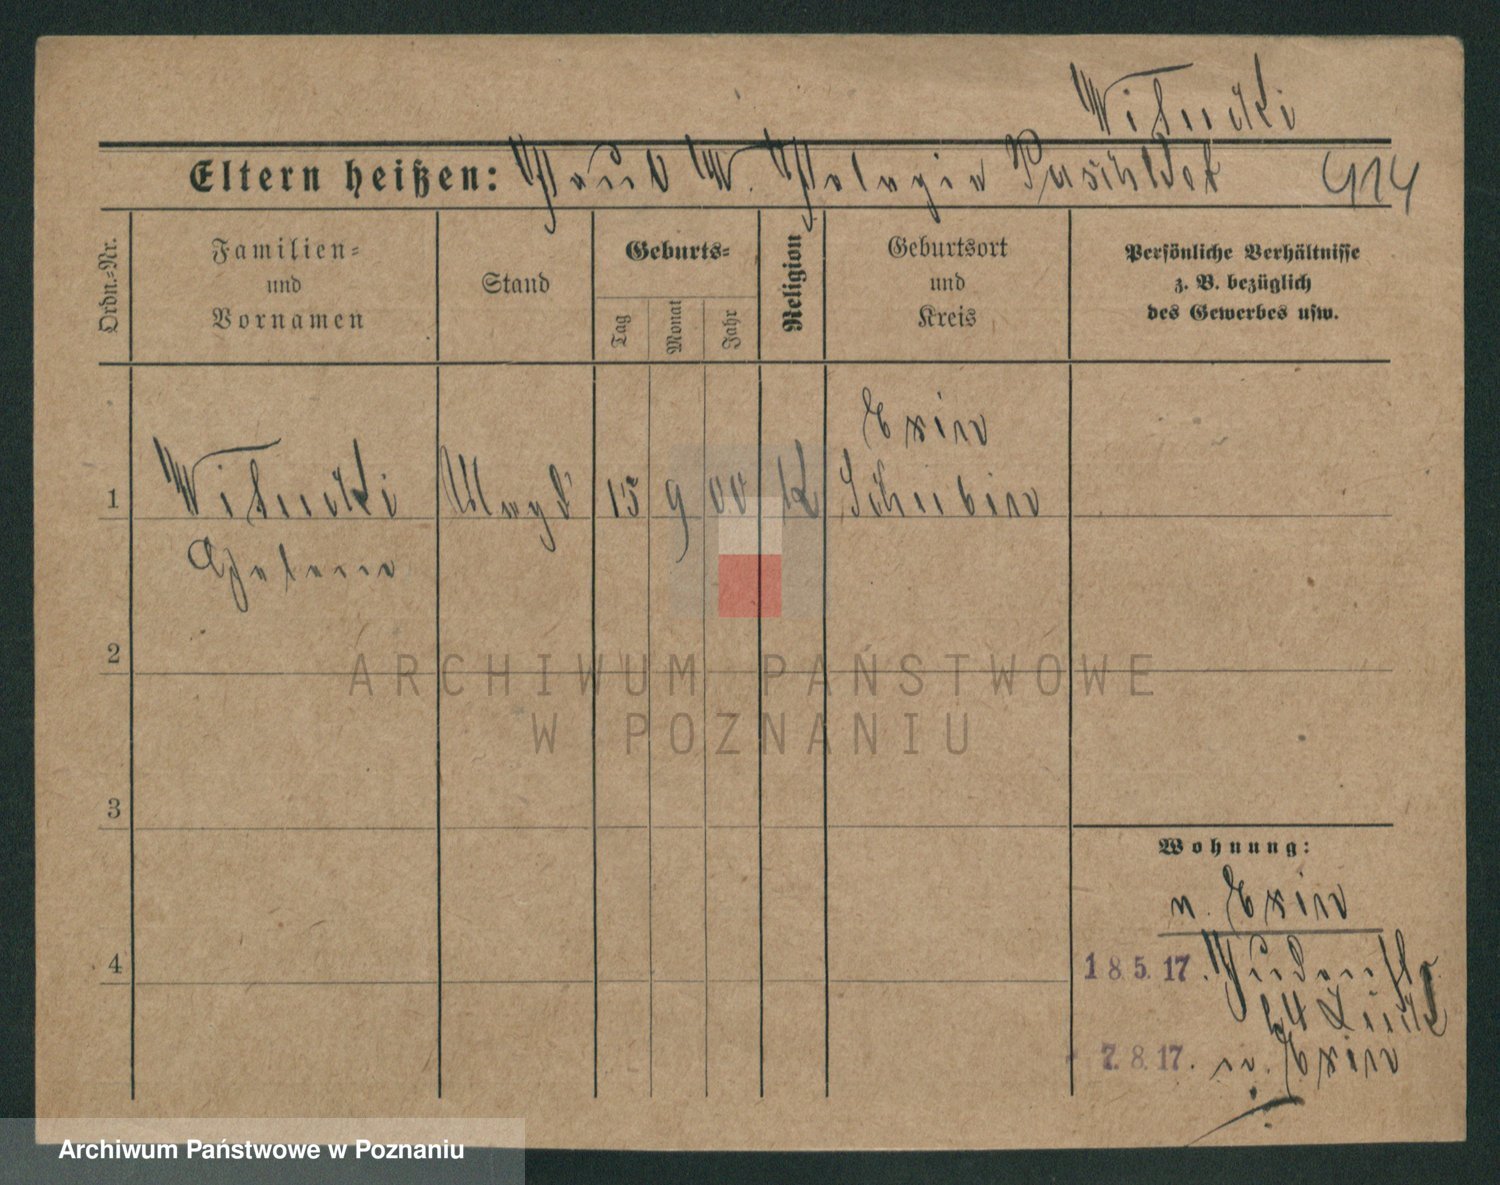 Witucki
Eltern heißen: Paul W. Pelagia 414
Ordn.-Nr.
Familien-
und
Vornamen
Stand
Geburts-
Tag
Monat
Jahr
Religion
Geburtsort
und
Kreis
Persönliche Verhältnisse
z. B. bezüglich
des Gewerbes usw.
Exin
1 Witucki Magd 15 9 00 K Schubin
Helene
2
3
Wohnung:
n. Exin
4 18.5.17.
7.8.17. n. Exin
ARCHIWUM PAŃSTWOWE
W POZNANIU
Archiwum Państwowe w Poznaniu